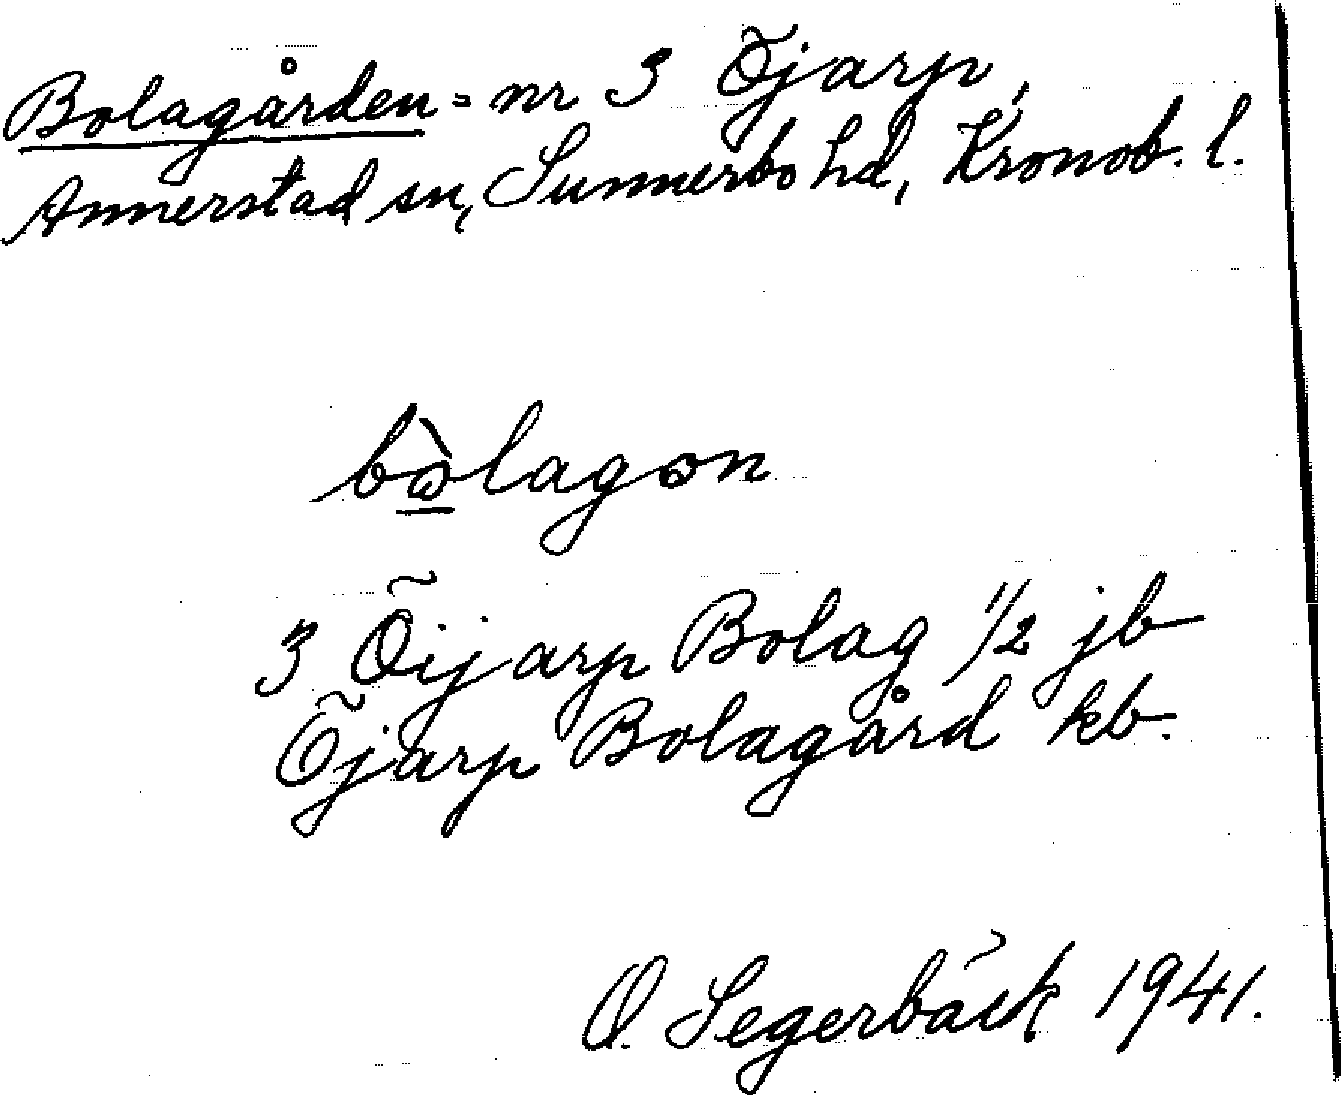 Bolagården = nr 3 Õjarp,
Annerstad sn, Sunnerbo hd, Kronob. l.
bɷ̱̀lagən
3 Õijarp Bolag 1/2 jb
Õjarp Bolagård kb.
O. Segerbäck 1941.